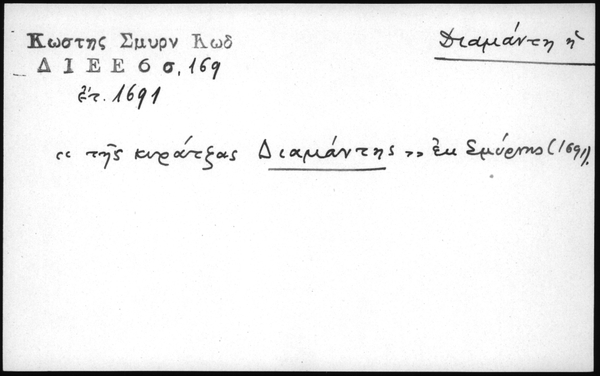 Κωστης Σμυρν Κωδ
Διαμάντη ἡ
Δ Ι Ε Ε 6 σ, 169
ἔτ. 1691
“ τῆς κυράτζας Διαμάντης ” ἐκ Σμύρνης (1691).